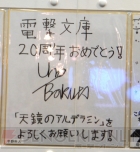 電撃文庫
20周年おめでとう!!
Uno
Bokuto
『天鏡のアルデラミン』を
よろしくお願いします!!